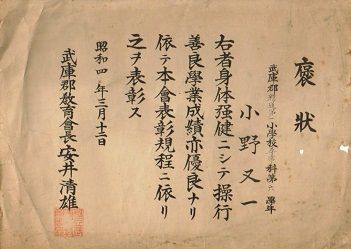 褒狀
武庫郡 小學校 科第六學年
小野又一
右者身体强健ニシテ操行
善良學業成績亦優良ナリ
依テ本會表彰規程ニ依リ
之ヲ表彰ス
昭和四年三月十二日
武庫郡敎育會長安井清雄